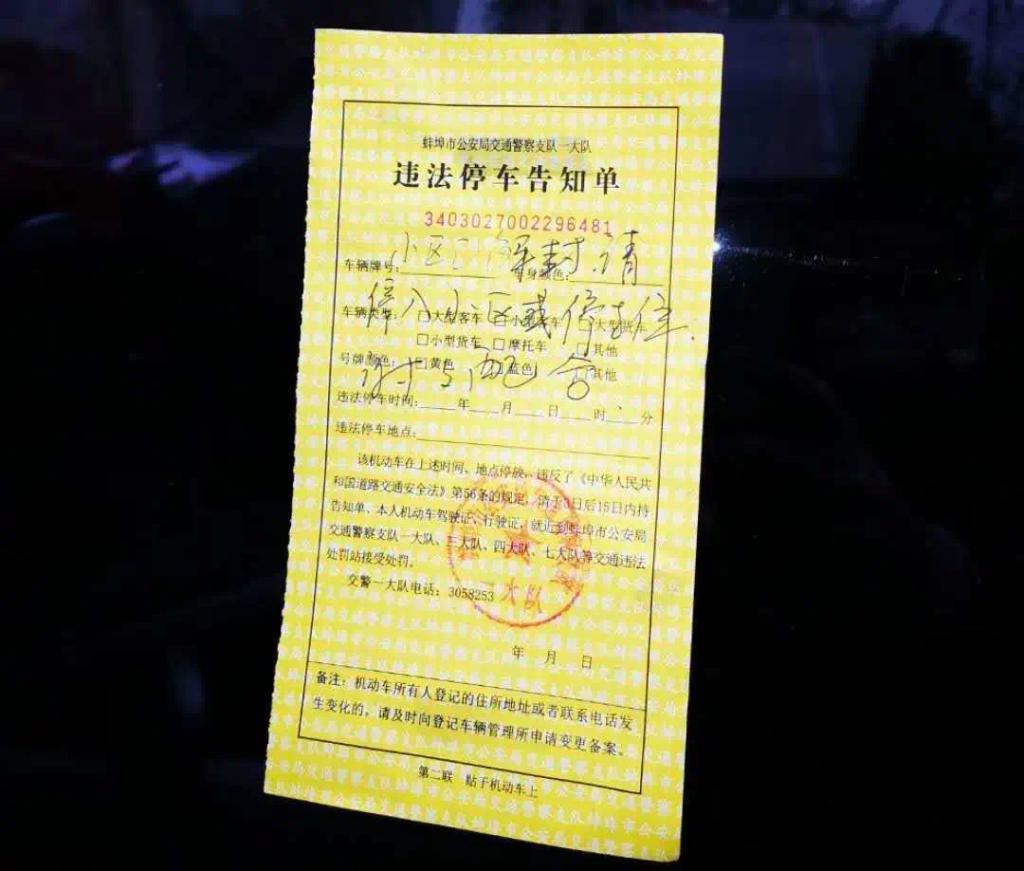 蚌埠市公安局交通警察支队一大队
违法停车告知单
3403027002296481
小区已解封.请
车辆牌号：
车身颜色：
停入小区或停车位.
车辆类型：□大型客车 □小型客车 □大型货车
□小型货车 □摩托车 □其他
谢谢配合
号牌颜色：□黄色 □蓝色 □其他
违法停车时间：____年____月____日____时____分
违法停车地点：
该机动车在上述时间、地点停放，违反了《中华人民共
和国道路交通安全法》第56条的规定，请于3日后15日内持
告知单、本人机动车驾驶证、行驶证，就近到蚌埠市公安局
交通警察支队一大队、二大队、四大队、七大队等交通违法
处罚站接受处罚。
交警一大队电话：3058253
一大队
年 月 日
备注：机动车所有人登记的住所地址或者联系电话发
生变化的，请及时向登记车辆管理所申请变更备案。
第二联 贴于机动车上